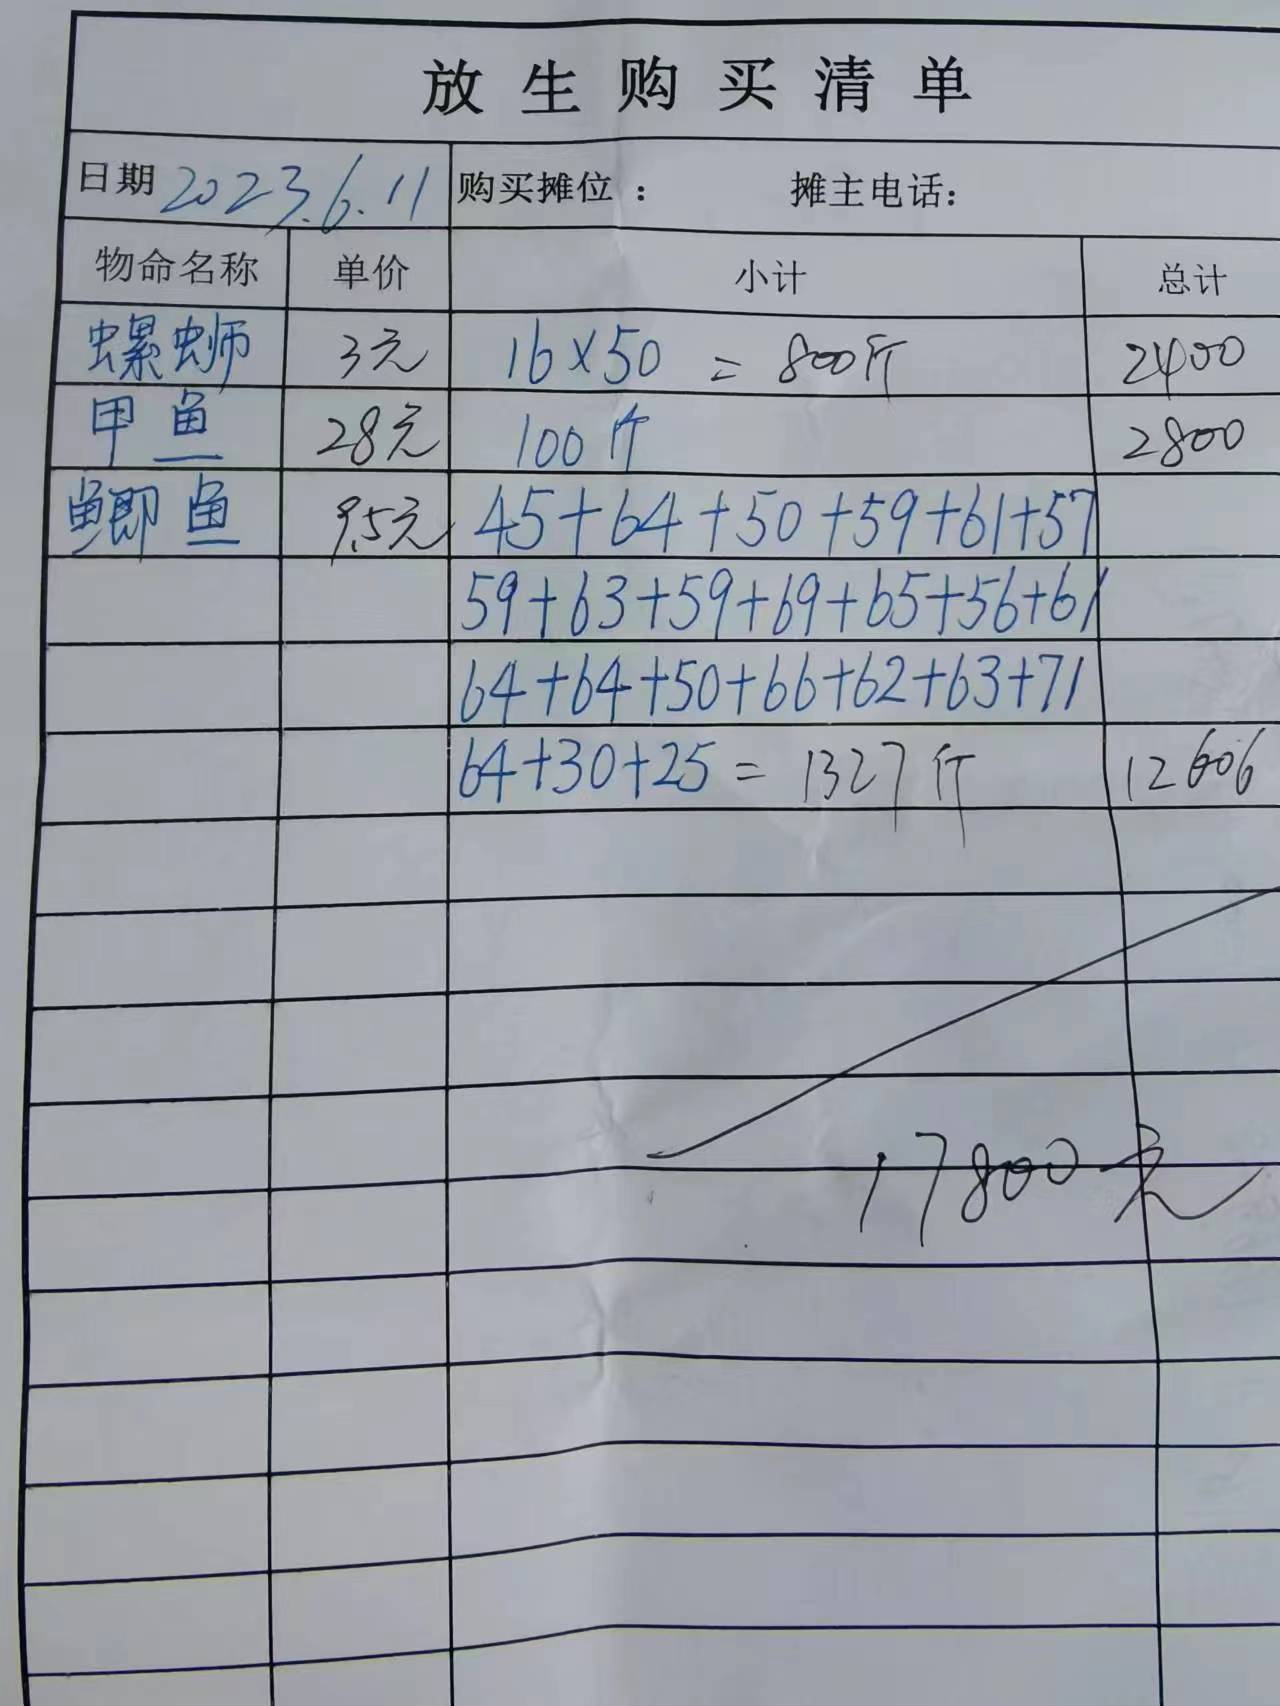 放生购买清单
日期 2023.6.11 购买摊位： 摊主电话：
物命名称 单价 小计 总计
螺蛳 3元 16×50 = 800斤 2400
甲鱼 28元 100斤 2800
鲫鱼 9.5元 45+64+50+59+61+57
59+63+59+69+65+56+61
64+64+50+66+62+63+71
64+30+25 = 1327斤 12606
17800元